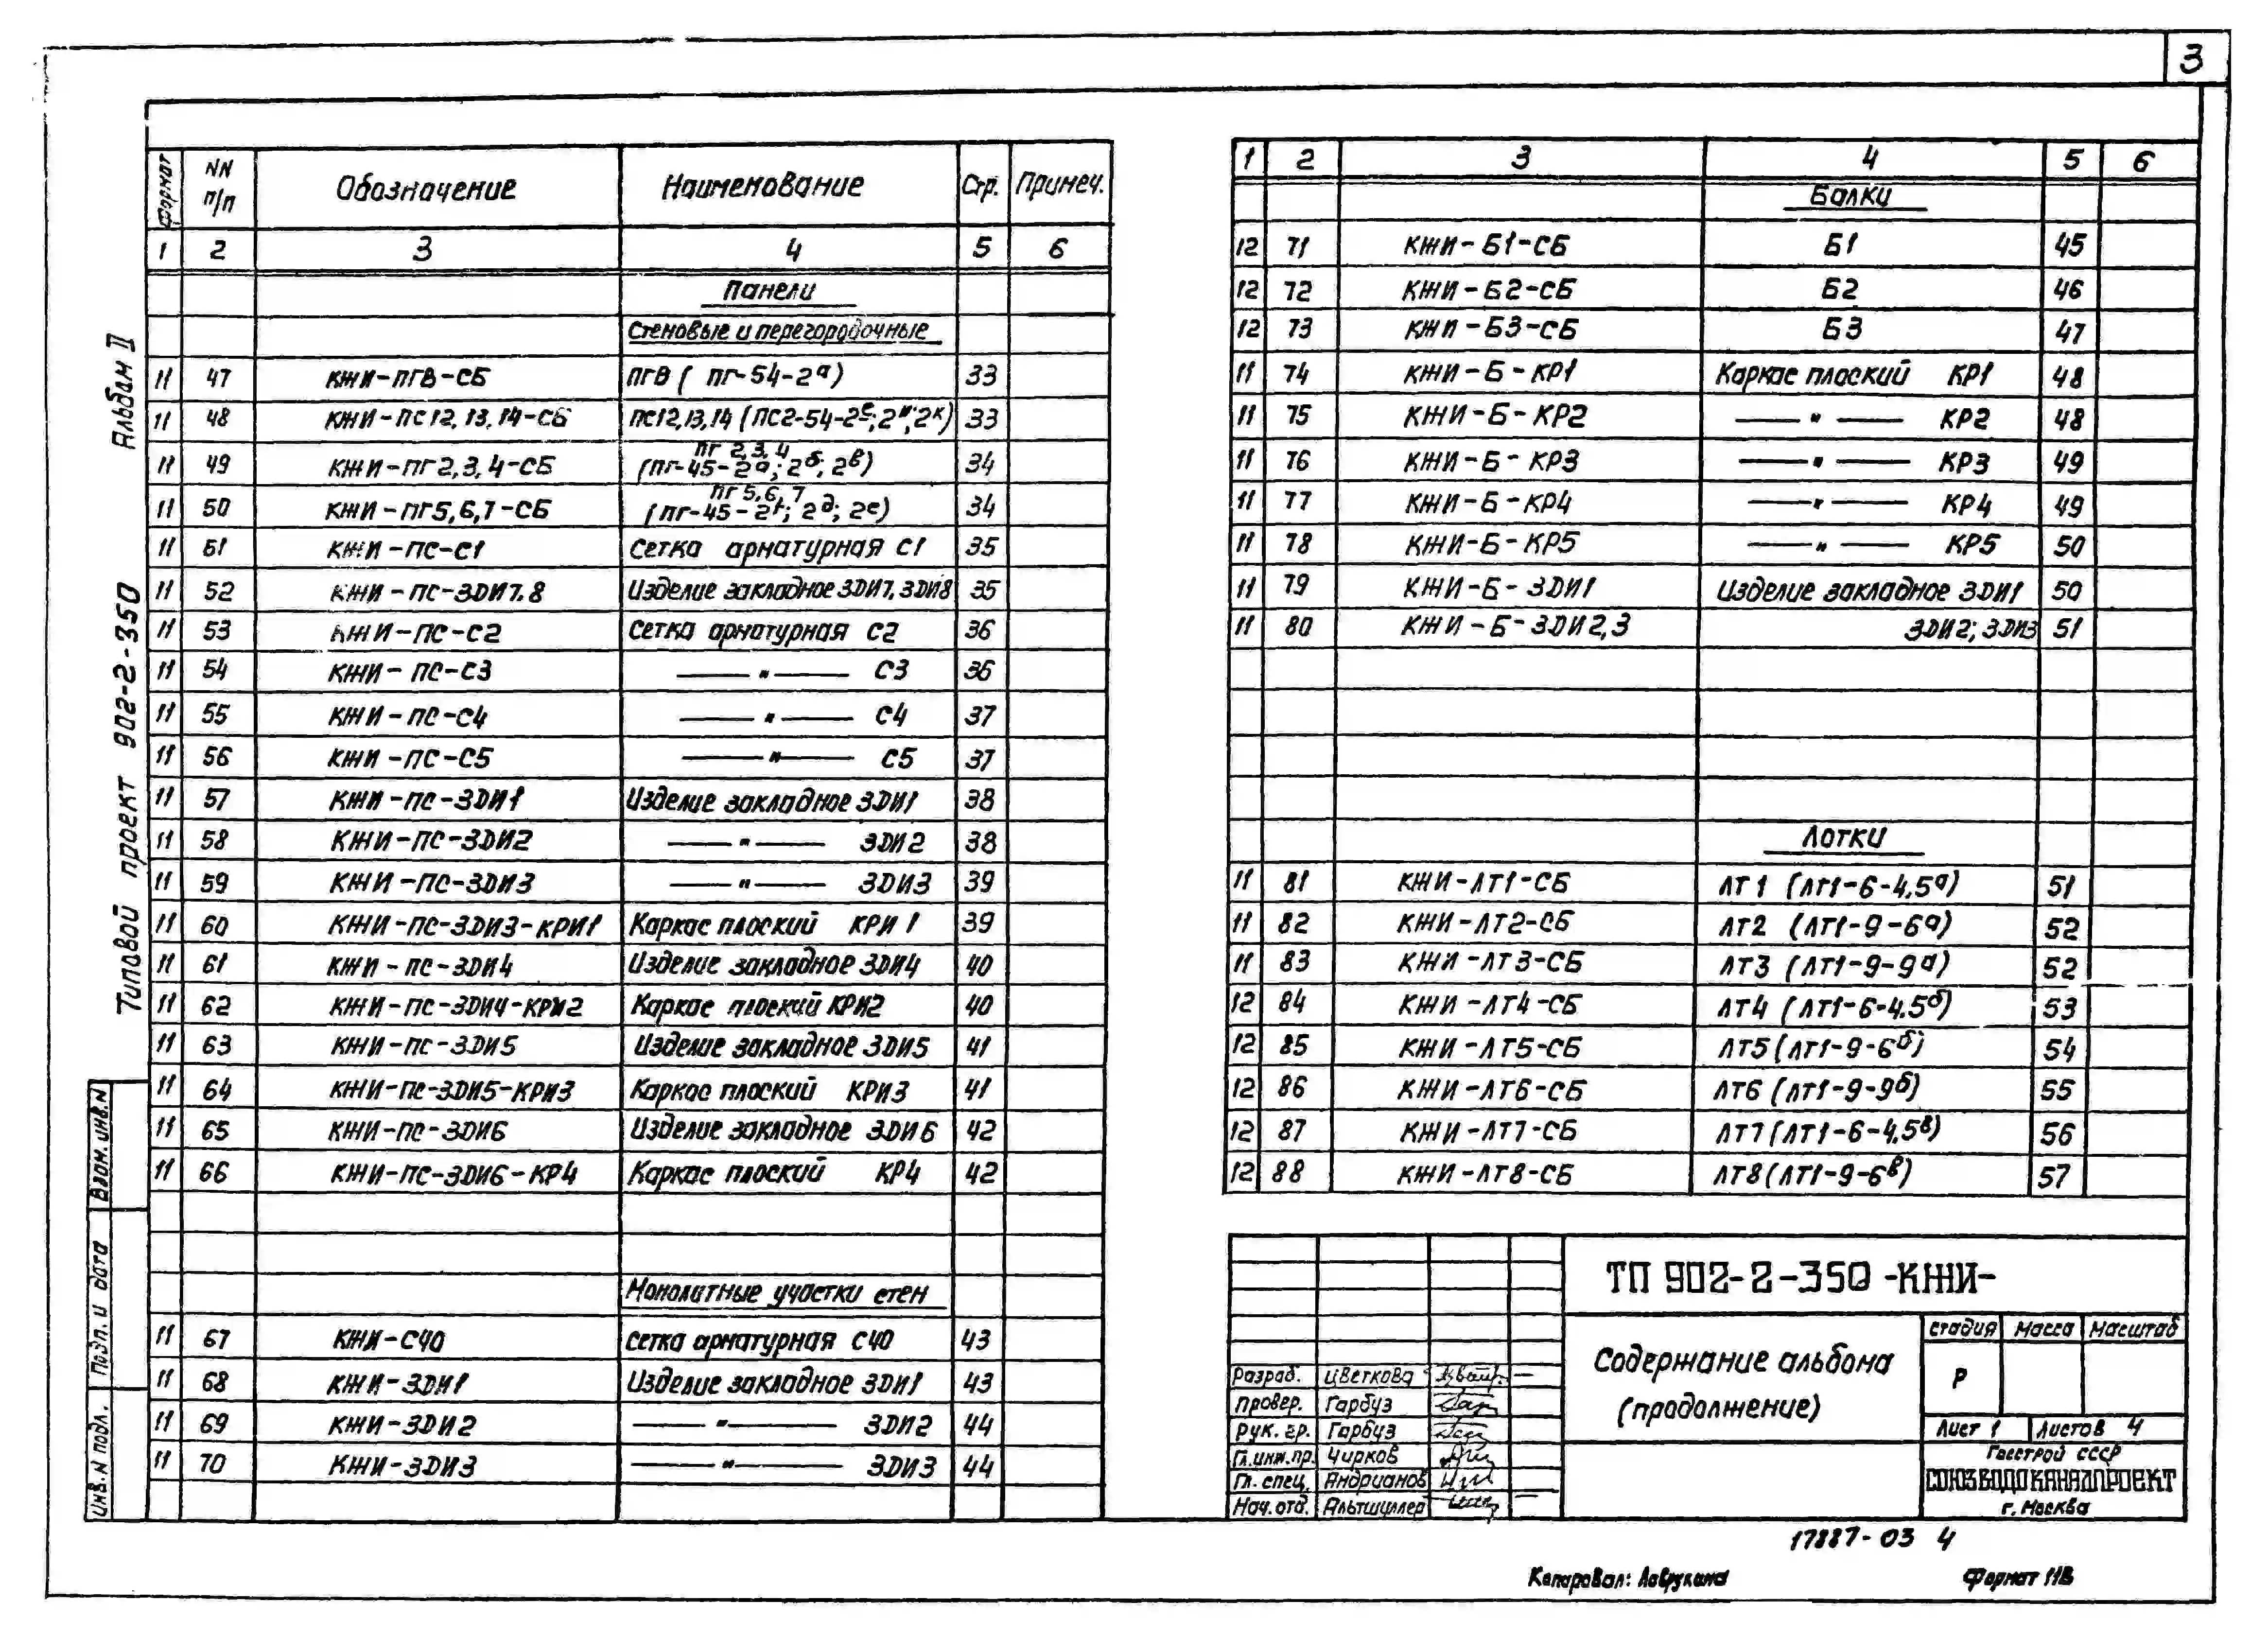 3
Альбом II
Типовой проект 902-2-350
Взам. инв. N
Подп. и дата
Инв. N подл.
Формат | NN п/п | Обозначение | Наименование | Стр. | Примеч.
1 | 2 | 3 | 4 | 5 | 6
Панели
Стеновые и перегородочные
11 | 47 | КЖИ-ПГ8-СБ | ПГ8 ( ПГ-54-2а) | 33
11 | 48 | КЖИ-ПС12,13,14-СБ | ПС12,13,14 (ПС2-54-2е; 2и; 2к) | 33
11 | 49 | КЖИ-ПГ2,3,4-СБ | ПГ 2,3,4 (ПГ-45-2а; 2б; 2в) | 34
11 | 50 | КЖИ-ПГ5,6,7-СБ | ПГ 5,6,7 (ПГ-45-2г; 2д; 2е) | 34
11 | 51 | КЖИ-ПС-С1 | Сетка арматурная С1 | 35
11 | 52 | КЖИ-ПС-ЗДИ7,8 | Изделие закладное ЗДИ7, ЗДИ8 | 35
11 | 53 | КЖИ-ПС-С2 | Сетка арматурная С2 | 36
11 | 54 | КЖИ-ПС-С3 | —— " —— С3 | 36
11 | 55 | КЖИ-ПС-С4 | —— " —— С4 | 37
11 | 56 | КЖИ-ПС-С5 | —— " —— С5 | 37
11 | 57 | КЖИ-ПС-ЗДИ1 | Изделие закладное ЗДИ1 | 38
11 | 58 | КЖИ-ПС-ЗДИ2 | —— " —— ЗДИ2 | 38
11 | 59 | КЖИ-ПС-ЗДИ3 | —— " —— ЗДИ3 | 39
11 | 60 | КЖИ-ПС-ЗДИ3-КРИ1 | Каркас плоский КРИ 1 | 39
11 | 61 | КЖИ-ПС-ЗДИ4 | Изделие закладное ЗДИ4 | 40
11 | 62 | КЖИ-ПС-ЗДИ4-КРИ2 | Каркас плоский КРИ2 | 40
11 | 63 | КЖИ-ПС-ЗДИ5 | Изделие закладное ЗДИ5 | 41
11 | 64 | КЖИ-ПС-ЗДИ5-КРИ3 | Каркас плоский КРИ3 | 41
11 | 65 | КЖИ-ПС-ЗДИ6 | Изделие закладное ЗДИ6 | 42
11 | 66 | КЖИ-ПС-ЗДИ6-КР4 | Каркас плоский КР4 | 42
Монолитные участки стен
11 | 67 | КЖИ-С40 | Сетка арматурная С40 | 43
11 | 68 | КЖИ-ЗДИ1 | Изделие закладное ЗДИ1 | 43
11 | 69 | КЖИ-ЗДИ2 | —— " —— ЗДИ2 | 44
11 | 70 | КЖИ-ЗДИ3 | —— " —— ЗДИ3 | 44
1 | 2 | 3 | 4 | 5 | 6
Балки
12 | 71 | КЖИ-Б1-СБ | Б1 | 45
12 | 72 | КЖИ-Б2-СБ | Б2 | 46
12 | 73 | КЖИ-Б3-СБ | Б3 | 47
11 | 74 | КЖИ-Б-КР1 | Каркас плоский КР1 | 48
11 | 75 | КЖИ-Б-КР2 | —— " —— КР2 | 48
11 | 76 | КЖИ-Б-КР3 | —— " —— КР3 | 49
11 | 77 | КЖИ-Б-КР4 | —— " —— КР4 | 49
11 | 78 | КЖИ-Б-КР5 | —— " —— КР5 | 50
11 | 79 | КЖИ-Б-ЗДИ1 | Изделие закладное ЗДИ1 | 50
11 | 80 | КЖИ-Б-ЗДИ2,3 | ЗДИ2; ЗДИ3 | 51
Лотки
11 | 81 | КЖИ-ЛТ1-СБ | ЛТ1 (ЛТ1-6-4,5а) | 51
11 | 82 | КЖИ-ЛТ2-СБ | ЛТ2 (ЛТ1-9-6а) | 52
11 | 83 | КЖИ-ЛТ3-СБ | ЛТ3 (ЛТ1-9-9а) | 52
12 | 84 | КЖИ-ЛТ4-СБ | ЛТ4 (ЛТ1-6-4.5б) | 53
12 | 85 | КЖИ-ЛТ5-СБ | ЛТ5 (ЛТ1-9-6б) | 54
12 | 86 | КЖИ-ЛТ6-СБ | ЛТ6 (ЛТ1-9-9б) | 55
12 | 87 | КЖИ-ЛТ7-СБ | ЛТ7 (ЛТ1-6-4,5в) | 56
12 | 88 | КЖИ-ЛТ8-СБ | ЛТ8 (ЛТ1-9-6в) | 57
ТП 902-2-350 -КЖИ-
Содержание альбома
(продолжение)
Стадия | Масса | Масштаб
Р
Лист 1 | Листов 4
Госстрой СССР
СОЮЗВОДОКАНАЛПРОЕКТ
г. Москва
Разраб. Цветкова
Провер. Гарбуз
Рук. гр. Гарбуз
Гл.инж.пр. Чирков
Гл. спец. Андрианов
Нач. отд. Альтшуллер
17887-03 4
Копировал: Лаврухина Формат 11В